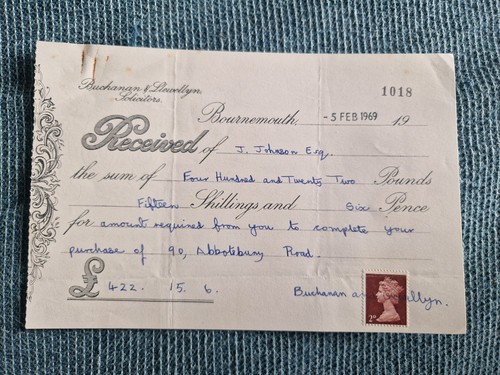 Buchanan & Llewellyn,
Solicitors.
1018
Bournemouth, - 5 FEB 1969 19
Received of J. Johnson Esq.
the sum of Four Hundred and Twenty Two Pounds
Fifteen Shillings and Six Pence
for amount required from you to complete your
purchase of 90, Abbotsbury Road.
£ 422. 15. 6.
Buchanan an llyn.
2D